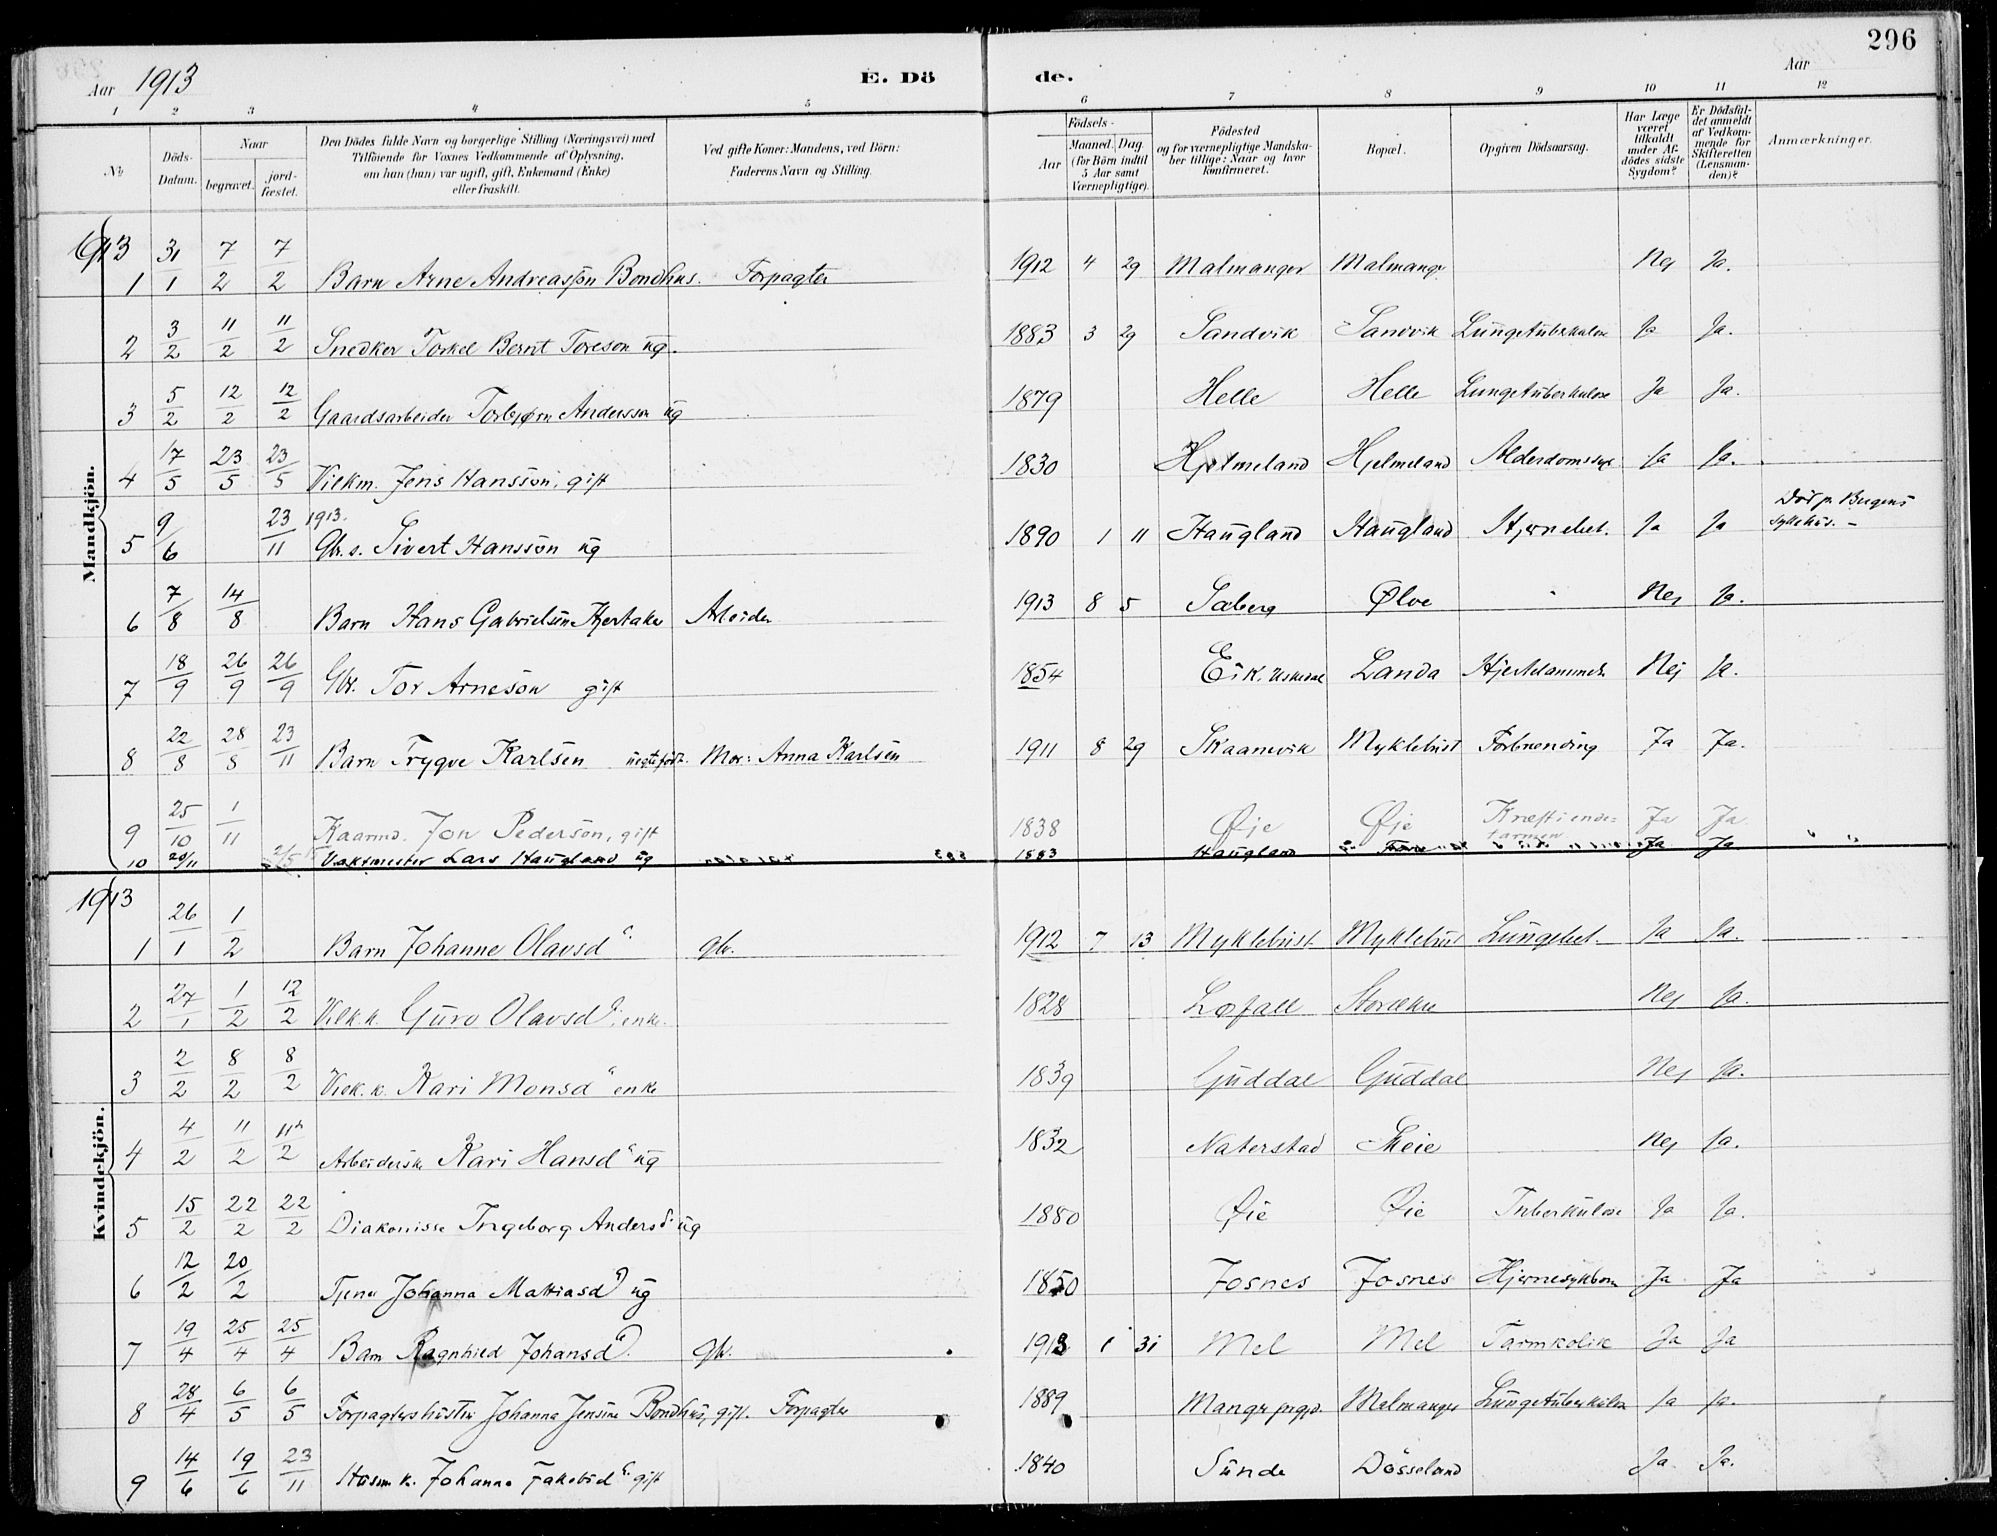 296
Aar 1913 E. Dö de. Aar
1 2 3 4 5 6 7 8 9 10 11 12
No
Döds-Datum.
Naar
begravet.
jord-fæstet.
Den Dödes fulde Navn og borgerlige Stilling (Næringsvei) med
Tilföiende for Voxnes Vedkommende af Oplysning,
om han (hun) var ugift, gift, Enkemand (Enke)
eller fraskilt.
Ved gifte Koner: Mandens, ved Börn:
Faderens Navn og Stilling.
Födsels-
Aar
Maaned. Dag.
(for Börn indtil
5 Aar samt
Værnepligtige).
Födested
og for værnepligtige Mandska-
ber tillige: Naar og hvor
konfirmeret.
Bopæl.
Opgiven Dödsaarsag.
Har Læge
været
tilkaldt
under Af-
dödes sidste
Sygdom?
Er Dödsfal-
det anmeldt
af Vedkom-
mende for
Skifteretten
(Lensman-
den)?
Anmærkninger.
Mandkjön.
1913
1 31/1 7/2 7/2 Barn Arne Andreassön Bondhus. Forpagter 1912 4 29 Malmanger Malmanger Nej Ja.
2 3/2 11/2 11/2 Snedker Torkel Bernt Toreson ug. 1883 3 29 Sandvik Sandvik Lungetuberkulose Ja Ja.
3 5/2 12/2 12/2 Gaardsarbeider Torbjørn Andersson ug 1879 Helle Helle Lungetuberkulose Ja Ja.
4 17/5 23/5 23/5 Vilkm. Jens Hansson, gift 1830 Hjelmeland Hjelmeland Ja Ja.
5 9/6 23/11 1913. Gbr.s. Sivert Hansson ug 1890 1 11 Haugland Haugland Hjernebet. Ja Ja Död pr. Bergens Sykehus. –
6 7/8 14/8 Barn Hans Gabrielsen Arbeider 1913 8 5 Sæberg Ølve Nej Ja.
7 18/9 26/9 26/9 Gbr. Tor Arneson gift 1854 Eik. Uskedal Landa Nej Ja.
8 22/8 28/8 23/11 Barn Trygve Karlsen uegte född. Mor: Anna Karlsen 1911 8 29 Skaanevik Myklebust Forbrænding Ja Ja.
9 25/10 1/11 Kaarmd. Jon Pederson, gift 1838 Øje Øje Kræft i endetarmen Ja Ja
10 20/11 2/5 Vaktmester Lars Haugland ug 1883 Haugland Ja Ja " "
Kvindekjön.
1913
1 26/1 1/2 Barn Johanne Olavsd. gbr. 1912 7 13 Myklebust. Myklebust Lungebet. Ja Ja.
2 27/1 1/2 12/2 Vilk.k. Guro Olavsd. enke. 1828 Lofall Nej Ja.
3 2/2 8/2 8/2 Vilk.k. Kari Monsd. enke 1839 Guddal Guddal Nej Ja.
4 4/2 11/2 11/2 Arbeiderske Kari Hansd. ug 1832 Naterstad Skeie Nej Ja.
5 15/2 22/2 22/2 Diakonisse Ingeborg Andersd. ug 1880 Øie Øie Tuberkulose Ja Ja.
6 12/2 20/2 Tjener Johanna Mattiasd. ug 1850 Fosnes Fosnes Ja Ja
7 19/4 25/4 25/4 Barn Ragnhild Johansd. Gbr. 1913 1 31 Mel Mel Tarmkolik Ja Ja
8 28/4 6/5 6/5 Forpagterhustru Johanna Jensine Bondhus, gift. Forpagter 1889 Manger prgjd. Malmanger Lungetuberkulose Ja Ja.
9 14/6 19/6 23/11 Husm.k. Johanna Jakobsd. gift 1840 Sunde Døsseland Ja. Ja.